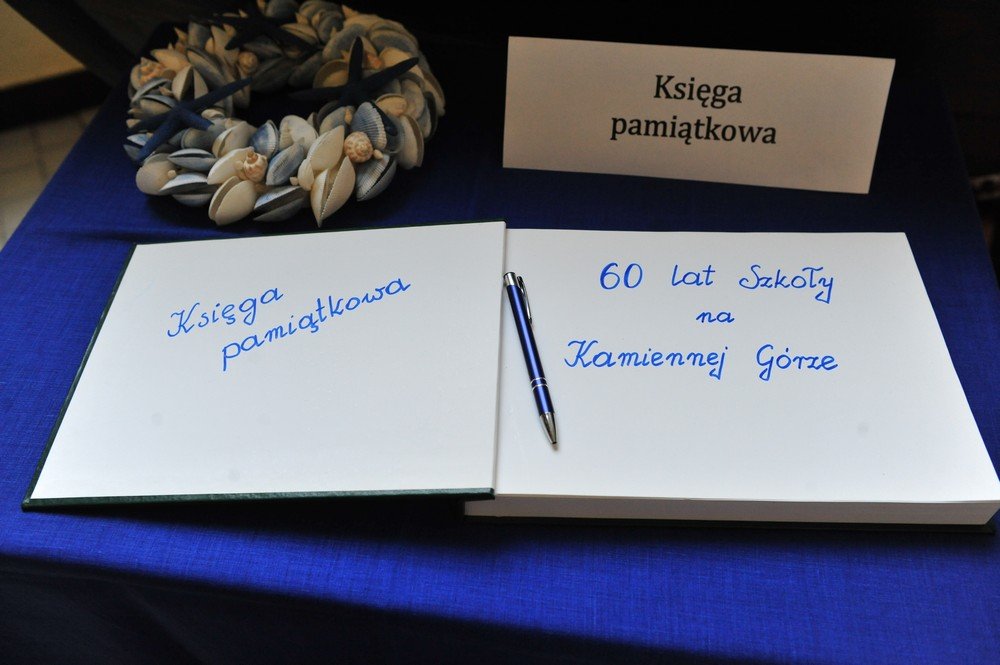 Księga
pamiątkowa
Księga
pamiątkowa
60 lat Szkoły
na
Kamiennej Górze